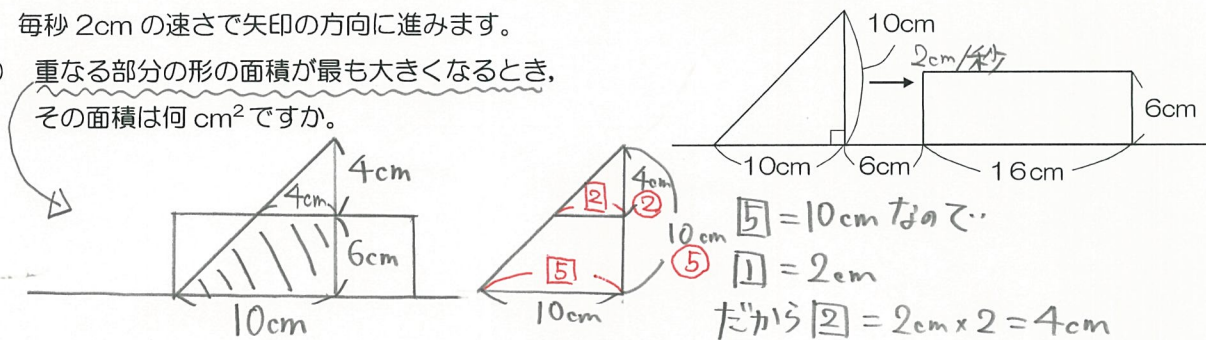 毎秒 2cm の速さで矢印の方向に進みます。
) 重なる部分の形の面積が最も大きくなるとき,
その面積は何 cm² ですか。
10cm
2cm/秒
6cm
10cm
6cm
16cm
4cm
4cm
6cm
10cm
4cm
2
②
10cm
⑤
5
10cm
5 = 10cm なので‥
1 = 2cm
だから 2 = 2cm × 2 = 4cm